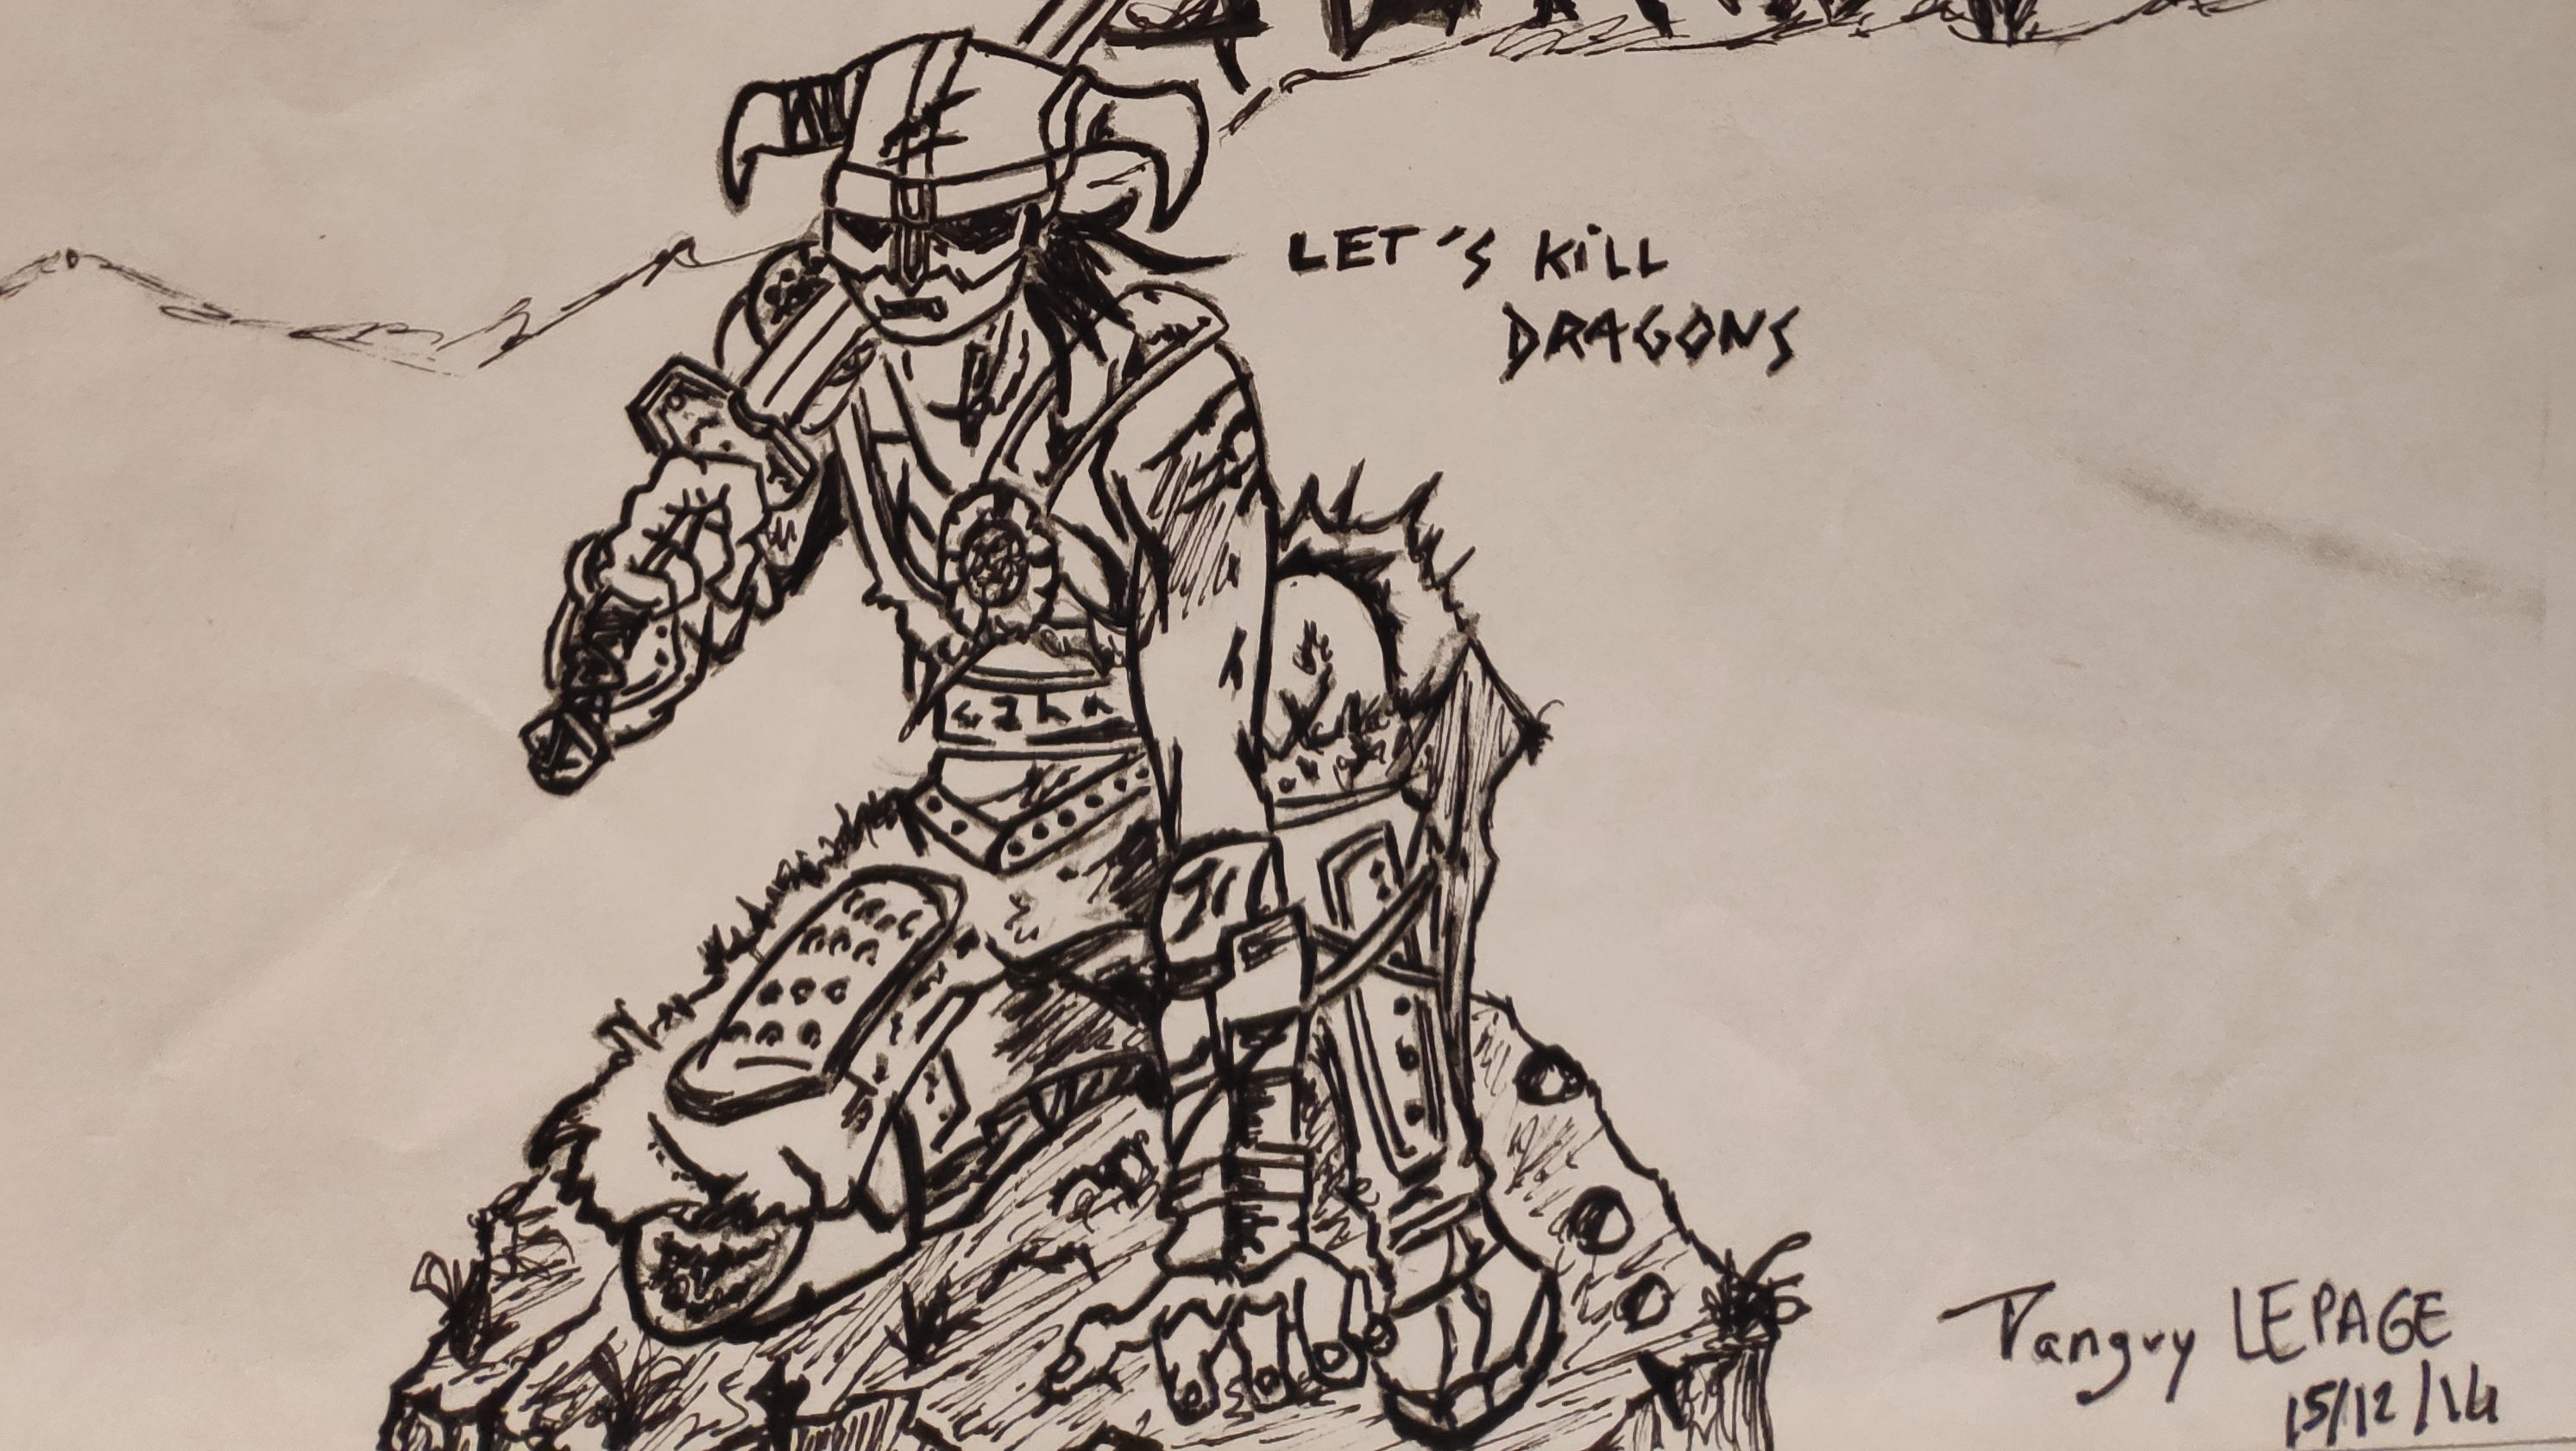 LET'S KiLL
DRAGONS
Tanguy LEPAGE
15/12/14